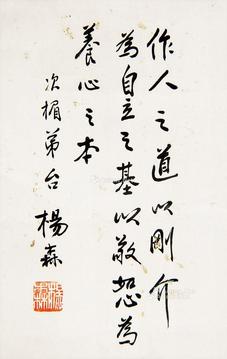 作人之道以剛介
為自立之基以敬恕為
養心之本
次楣弟台
楊森